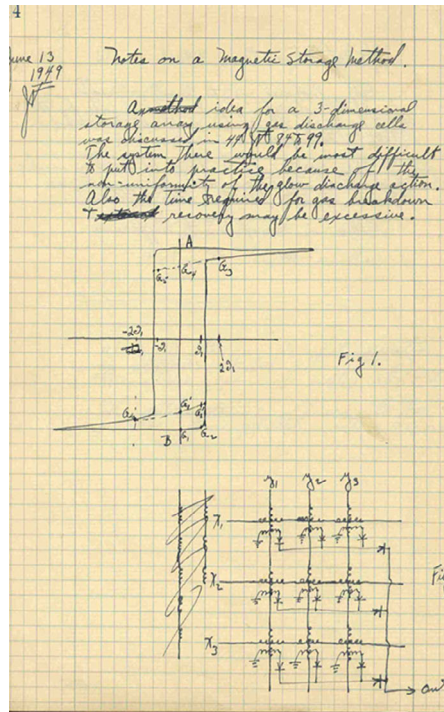 4
June 13
1949
Notes on a Magnetic Storage Method.
An method idea for a 3-dimensional
storage array using gas discharge cells
was discussed in
The system there would be most difficult
to put into practice because of the
non-uniformity of the glow discharge action.
Also the time required for gas breakdown
+ recovery may be excessive.
A
a5 a4 a3
-2∂1 -∂1 ∂1 2∂1
Fig 1.
B a1 a2
y1 y2 y3
x1
x2
Fig
x3
out